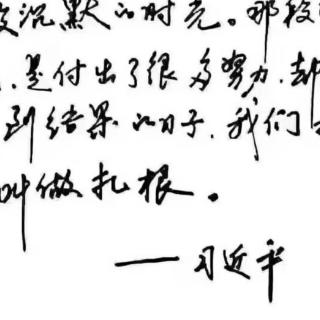 段沉默的时光。那段时
,是付出了很多努力,却
到结果的日子,我们
叫做扎根。
——习近平